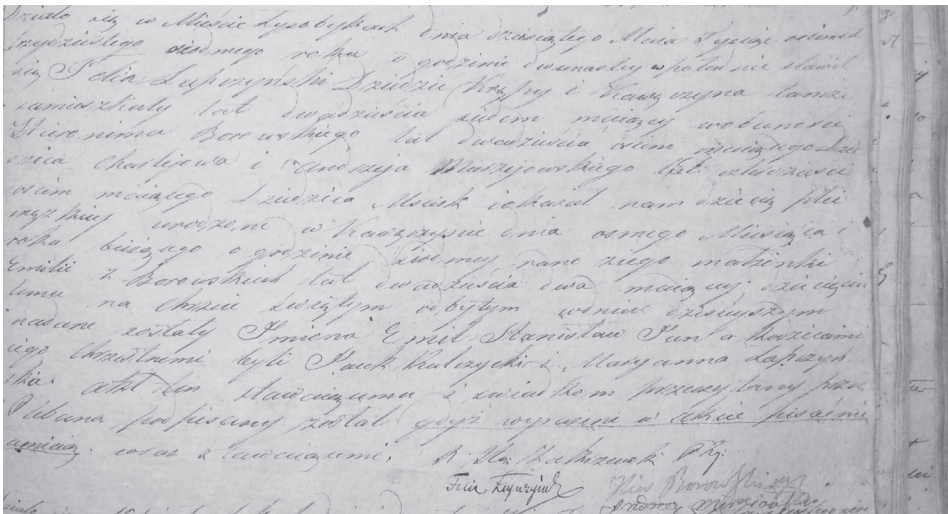 Działo się w Mieście Łysobykach dnia dziesiątego Maia Tysiąc ośmset
trzydziestego siodmego roku o godzinie dwunastey w południe stawił
się Felix Łapczyński Dziedzic Krępy i Kawęczyna tamże
zamieszkały lat dwadzieścia siedm maiący w obecności
Hieronima Borowskiego lat dwadzieścia ośm maiącego Dzie
dzica Charlejowa i Andrzeja lat
ośm maiącego Dziedzica i okazał nam dziecię płci
męzkiey urodzone w Kawęczynie dnia osmego Miesiąca i
roku bieżącego o godzinie siodmey rano z iego małżonki
Emilii z Borowskich lat dwadzieścia dwa maiącey; dziecięciu
temu na Chrzcie Swiętym odbytym w dniu dzisieyszym
nadane zostały Imiona Emil Stanisław Jan a Rodzicami
iego Chrzestnemi byli Jacek Kulczycki i Maryanna Łapczyń
ska. Akt ten stawaiącemu i świadkom przeczytany przez
Plebana podpisany został gdyż wyrażeni w akcie pisać nie
umieią. wraz z stawaiącemi.
Felix Łapczyński Hier Borowski
Andrzey